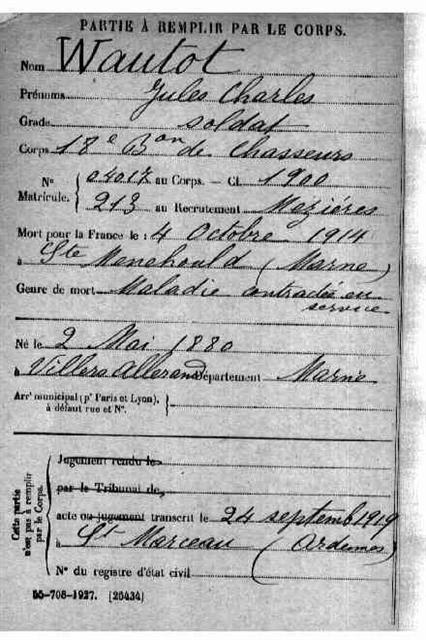 PARTIE À REMPLIR PAR LE CORPS.
Nom Wautot
Prénoms Jules Charles
Grade soldat
Corps 18e Bon de Chasseurs
N° 04017 au Corps. — Cl. 1900
Matricule. 213 au Recrutement Mezières
Mort pour la France le : 4 Octobre 1914
à Ste Menehould (Marne)
Genre de mort Maladie contractée en
service
Né le 2 Mai 1880
à Villers Allerand Département Marne
Arrt municipal (pr Paris et Lyon),
à défaut rue et N°.
Cette partie
n'est pas à remplir
par le Corps.
Jugement rendu le
par le Tribunal de
acte ou jugement transcrit le 24 septemb 1919
à St Marceau (Ardennes)
N° du registre d'état civil
55-708-1927. [26434]